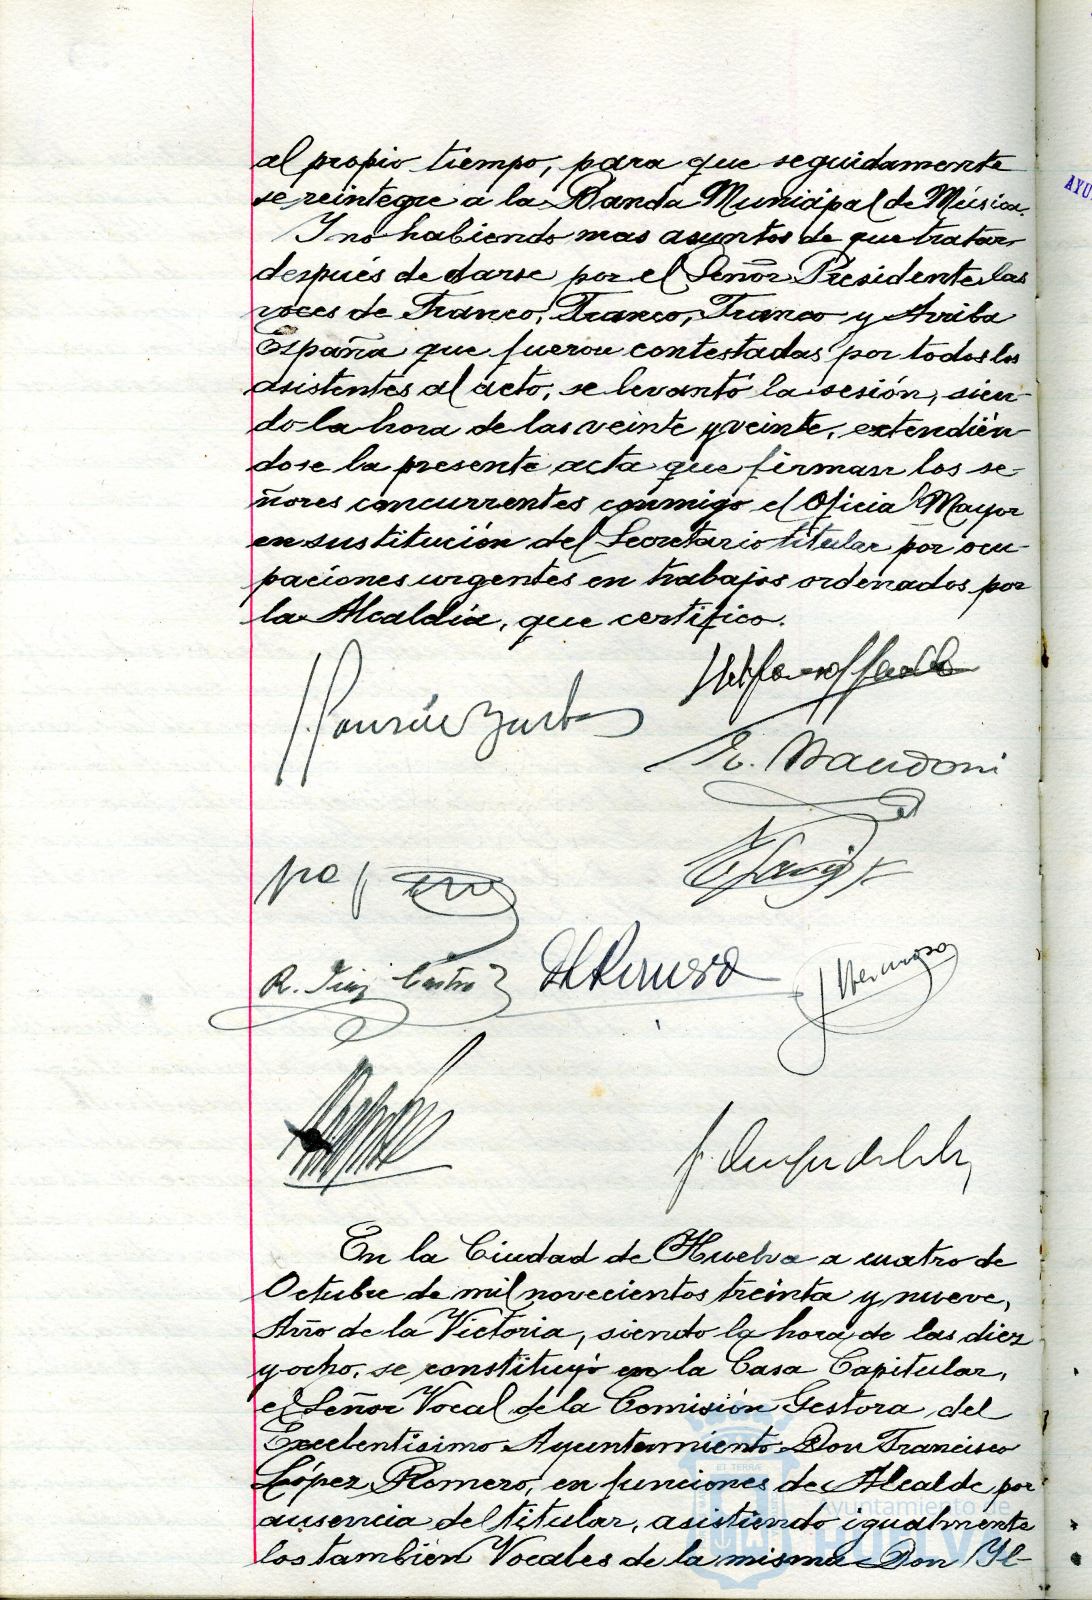 al propio tiempo, para que seguidamente
se reintegre a la Banda Municipal de Música.
Y no habiendo mas asuntos de que tratar,
después de darse por el Señor Presidente las
voces de Franco, Franco, Franco y Arriba
España que fueron contestadas por todos los
asistentes al acto, se levantó la sesión, sien-
do la hora de las veinte y veinte, extendién-
dose la presente acta que firman los se-
ñores concurrentes conmigo el Oficial Mayor
en sustitución del Secretario titular por ocu-
paciones urgentes en trabajos ordenados por
la Alcaldía, que certifico.
R. Diaz Castro
J. Hermoso
En la Ciudad de Huelva a cuatro de
Octubre de mil novecientos treinta y nueve,
Año de la Victoria, siendo la hora de las diez
y ocho, se constituyó en la Casa Capitular,
el Señor Vocal de la Comisión Gestora del
Excelentísimo Ayuntamiento Don Francisco
López Romero, en funciones de Alcalde por
ausencia del titular, asistiendo igualmente
los también Vocales de la misma Don Il-
Ayuntamiento de
HUELVA
AYU